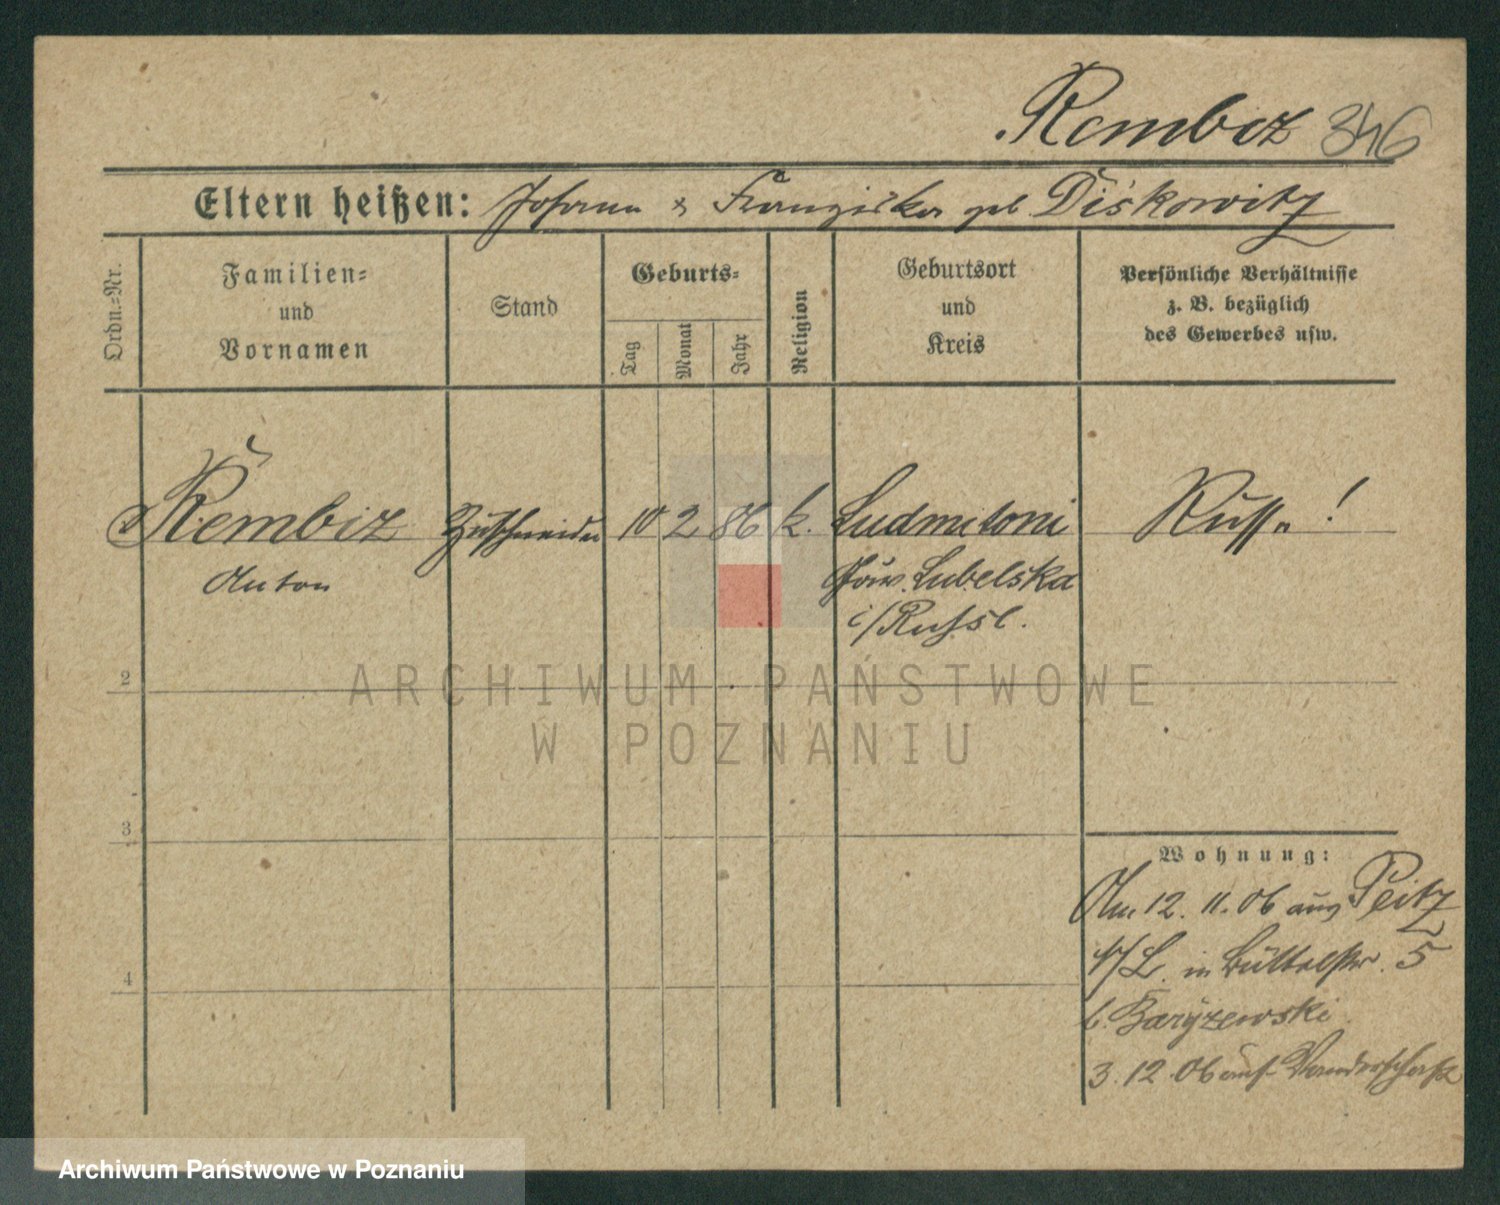 Rembiz 346
Eltern heißen: Johann & Franziska geb Diskowitz
Ordn.-Nr.
Familien-
und
Vornamen
Stand
Geburts-
Tag
Monat
Jahr
Religion
Geburtsort
und
Kreis
Persönliche Verhältnisse
z. B. bezüglich
des Gewerbes usw.
Rembiz Zuschneider 10 2 86 k. Ludmitoni Russe !
Anton Gouv. Lubelska
i/Russl.
2
3
4
Wohnung:
Am 12. 11. 06 aus Peitz
N/L. in Büttelstr. 5
b. Baryzewski
3. 12. 06 auf Wanderschaft
ARCHIWUM PAŃSTWOWE
W POZNANIU
Archiwum Państwowe w Poznaniu